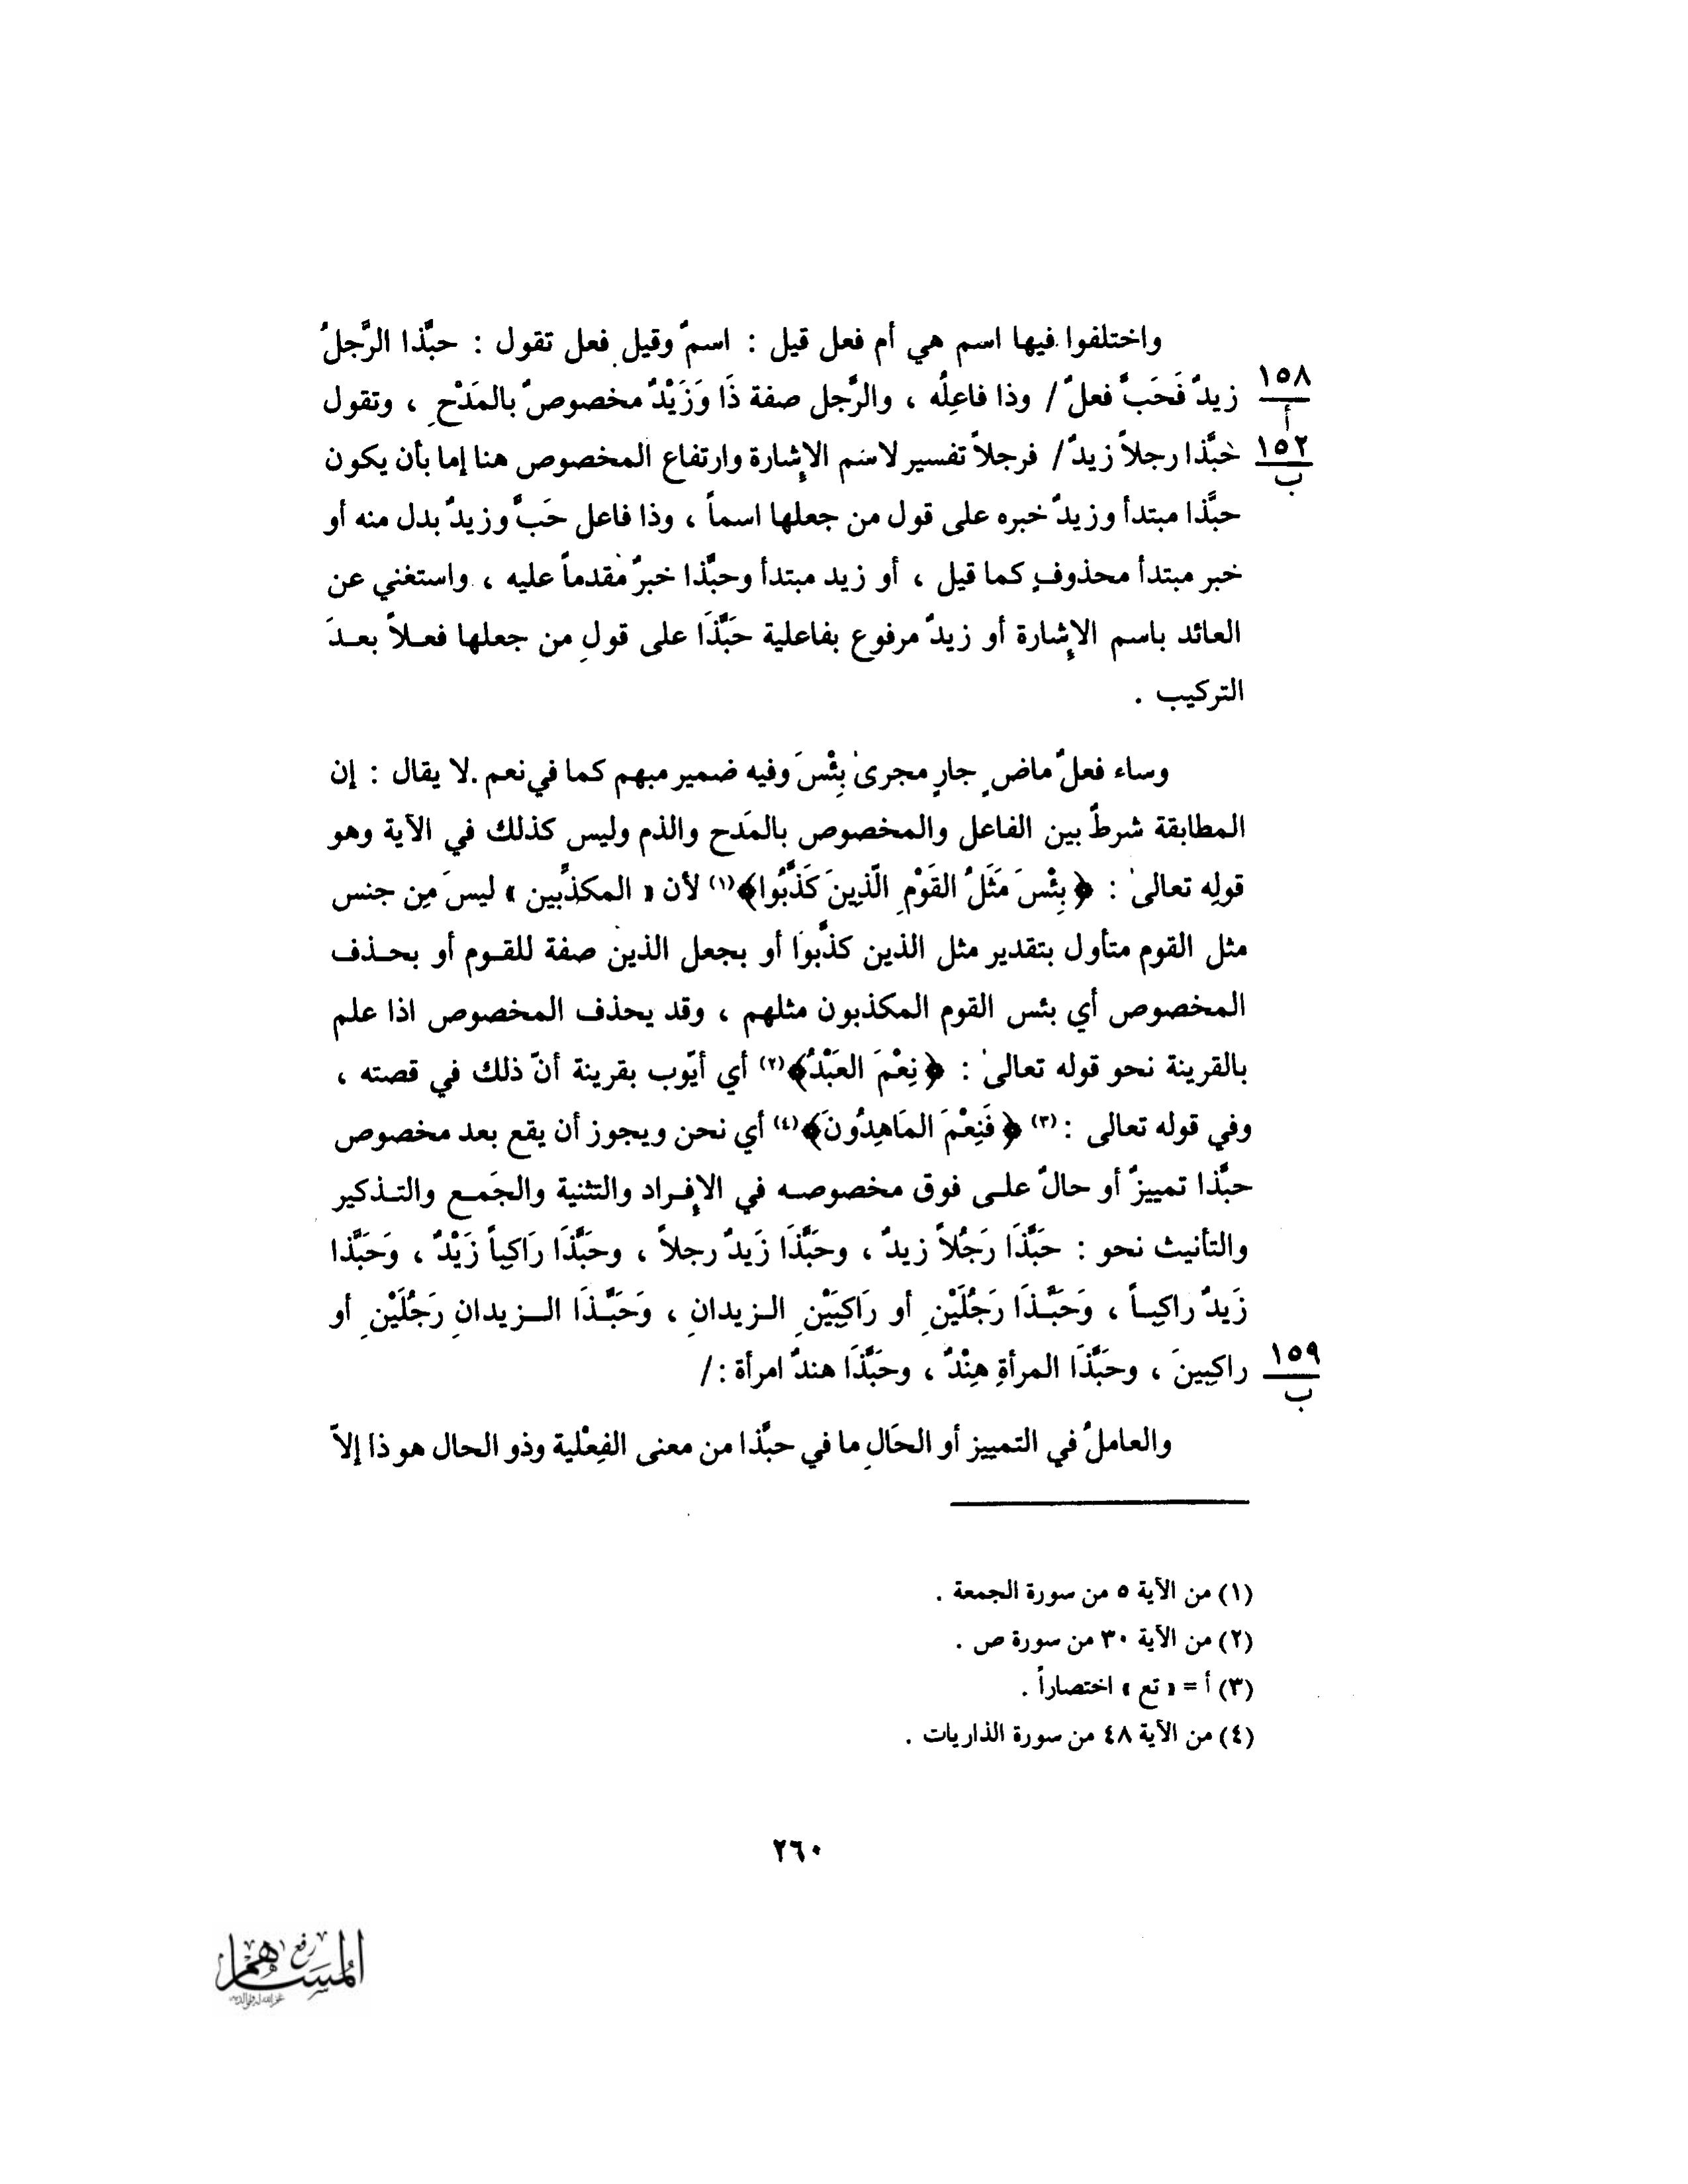 واختلفوا فيها اسم هي أم فعل قيل : اسمٌ وقيل فعل تقول : حبَّذا الرَّجلُ
١٥٨
أ
زيدٌ فَحَبَّ فعلٌ / وذا فاعِلُه ، والرَّجل صفة ذَا وَزَيْدٌ مخصوصٌ بالمَدْحِ ، وتقول
١٥٢
ب
حَبَّذا رجلاً زيدٌ / فرجلاً تفسير لاسم الإشارة وارتفاع المخصوص هنا إما بأن يكون
حبَّذا مبتدأ وزيدٌ خبره على قول من جعلها اسماً ، وذا فاعل حَبَّ وزيدٌ بدل منه أو
خبر مبتدأ محذوفٍ كما قيل ، أو زيد مبتدأ وحبَّذا خبرٌ مُقدماً عليه ، واستغني عن
العائد باسم الإشارة أو زيدٌ مرفوع بفاعلية حَبَّذَا على قولِ من جعلها فعلاً بعدَ
التركيب .
وساء فعلٌ ماضٍ جارٍ مجرىٰ بِئْسَ وفيه ضمير مبهم كما في نعم . لا يقال : إن
المطابقة شرطٌ بين الفاعل والمخصوص بالمَدح والذم وليس كذلك في الآية وهو
قولِه تعالىٰ : ﴿ بِئْسَ مَثَلُ القَوْمِ الَّذِينَ كَذَّبُوا ﴾(١) لأن « المكذِّبين » ليسَ مِن جنس
مثل القوم متأول بتقدير مثل الذين كذَّبوا أو بجعل الذين صفة للقوم أو بحذف
المخصوص أي بئس القوم المكذبون مثلهم ، وقد يحذف المخصوص اذا علم
بالقرينة نحو قوله تعالىٰ : ﴿ نِعْمَ العَبْدُ ﴾(٢) أي أيّوب بقرينة أنّ ذلك في قصته ،
وفي قوله تعالى :(٣) ﴿ فَنِعْمَ المَاهِدُونَ ﴾(٤) أي نحن ويجوز أن يقع بعد مخصوص
حبَّذا تمييزٌ أو حالٌ على فوق مخصوصه في الإفراد والتثنية والجَمع والتذكير
والتأنيث نحو : حَبَّذَا رَجُلاً زيدٌ ، وحَبَّذَا زَيدٌ رجلاً ، وحَبَّذَا رَاكِباً زَيْدٌ ، وَحَبَّذا
زَيدٌ راكِباً ، وَحَبَّذَا رَجُلَيْنِ أو رَاكِبَيْنِ الزيدانِ ، وَحَبَّذَا الزيدانِ رَجُلَيْنِ أو
١٥٩
ب
راكِبِينَ ، وحَبَّذَا المرأةِ هِنْدٌ ، وحَبَّذَا هندٌ امرأة : /
والعاملُ في التمييز أو الحَالِ ما في حبَّذا من معنى الفِعْلية وذو الحال هو ذا إلاّ
(١) من الآية ٥ من سورة الجمعة .
(٢) من الآية ٣٠ من سورة ص .
(٣) أ = « تع » اختصاراً .
(٤) من الآية ٤٨ من سورة الذاريات .
٢٦٠
رفع
المساهم